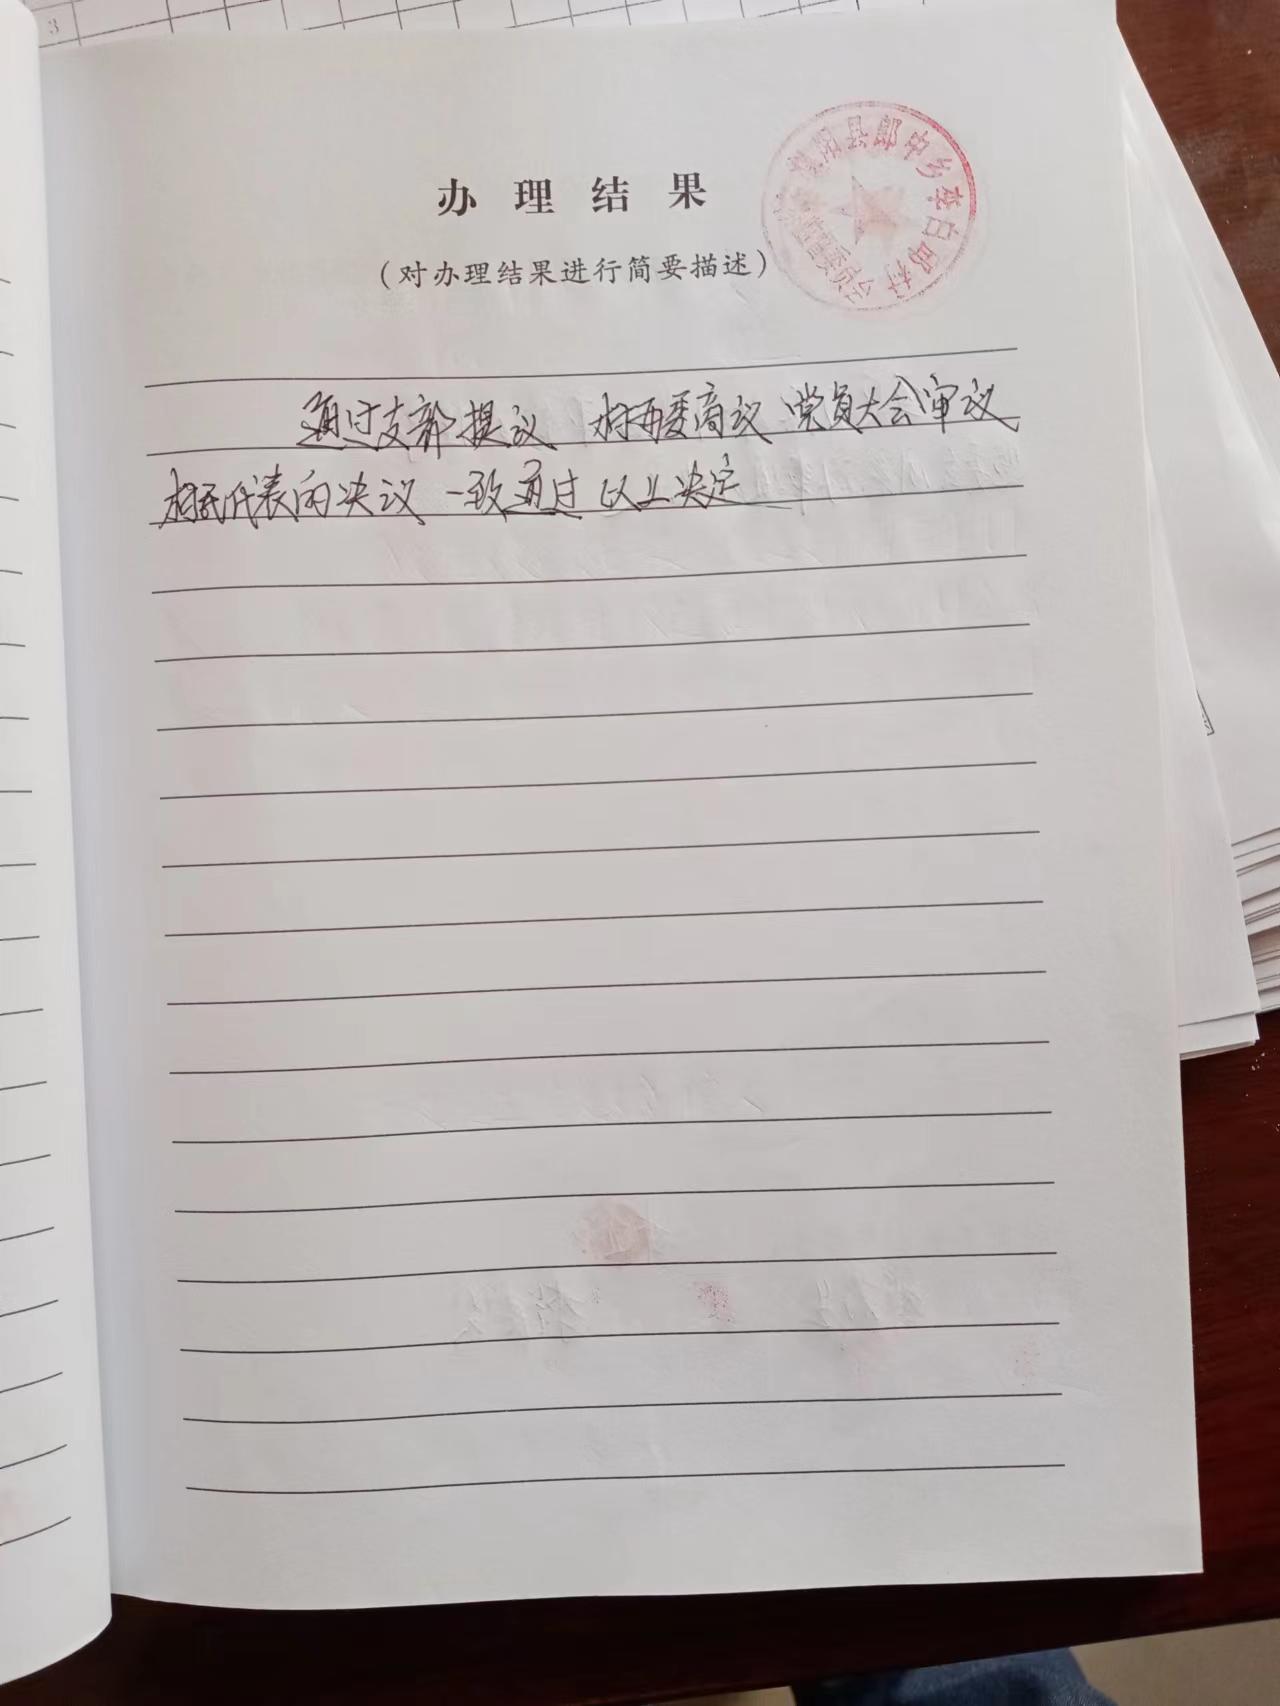 办理结果
（对办理结果进行简要描述）
阳县郎中乡李白邱村
监督委员会
通过支部提议 村两委商议 党员大会审议
村民代表的决议 一致通过以上决定